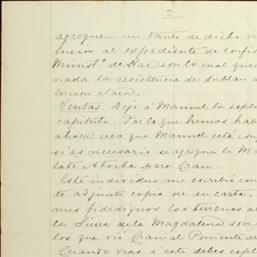 2
agreguen un tanto de dicho
lucion al expediente de confi
Minist.º de Hac son lo cual que
nada la resistencia de Sublan
lucion clara.
Ventas. Dejé á Manuel la espli
capítulo. Por lo que hemos hab
ahora creo que Manuel está con
si es necesario se agregue la Ma
Este individuo me escribió con
te adjunto copia de su carta.
mes fidedignos los terrenos
la Sierra de la Magdalena son
los que vió Cran al Poniente de
Cuando veas á este debes espli